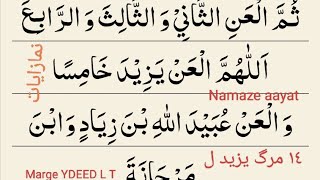 ثُمَّ الْعَنِ الثَّانِيْ وَ الثَّالِثَ وَ الرَّابِعَ
اَللّٰهُمَّ الْعَنْ يَزِيْدَ خَامِسًا
نمازایات
Namaze aayat
وَ الْعَنْ عُبَيْدَ اللهِ بْنَ زِيَادٍ وَ ابْنَ
مَرْجَانَةَ
١٤ مرگ یزید ل
Marge YDEED L T